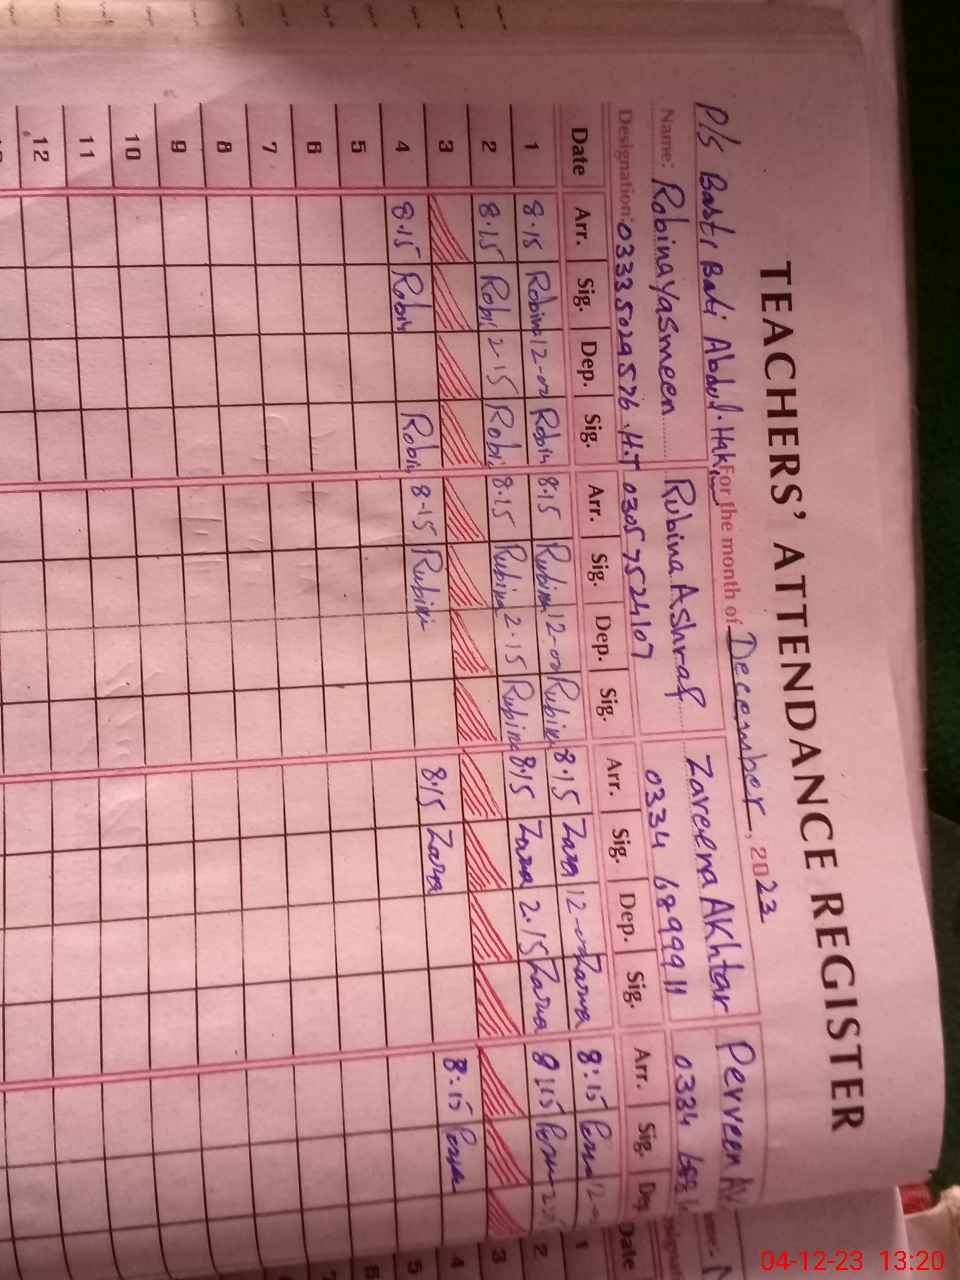 TEACHERS' ATTENDANCE REGISTER
P/S Basti Bati Abdul Hakim For the month of December, 2023
Name: Robina Yasmeen Rubina Ashraf Zareena Akhtar Perveen
Designation: 03335029576 H.T 03057524107 0334 6899911 0334
Date Arr. Sig. Dep. Sig. Arr. Sig. Dep. Sig. Arr. Sig. Dep. Sig. Arr. Sig. Dep Date
1 8.15 Robina 12-00 Robin 8.15 Rubina 12-00 Rubina 8.15 Zarea 12-00 Zarea 8:15 12- 1
2 8.15 Robi 2-15 Robi 8.15 Rubina 2.15 Rubina 8.15 Zarea 2.15 Zarea 8:15 2
3 3
4 8.15 Robin Robin 8-15 Rubina 8.15 Zarea 8:15 4
5 5
6 6
7 7
8
9
10
11
12
04-12-23 13:20